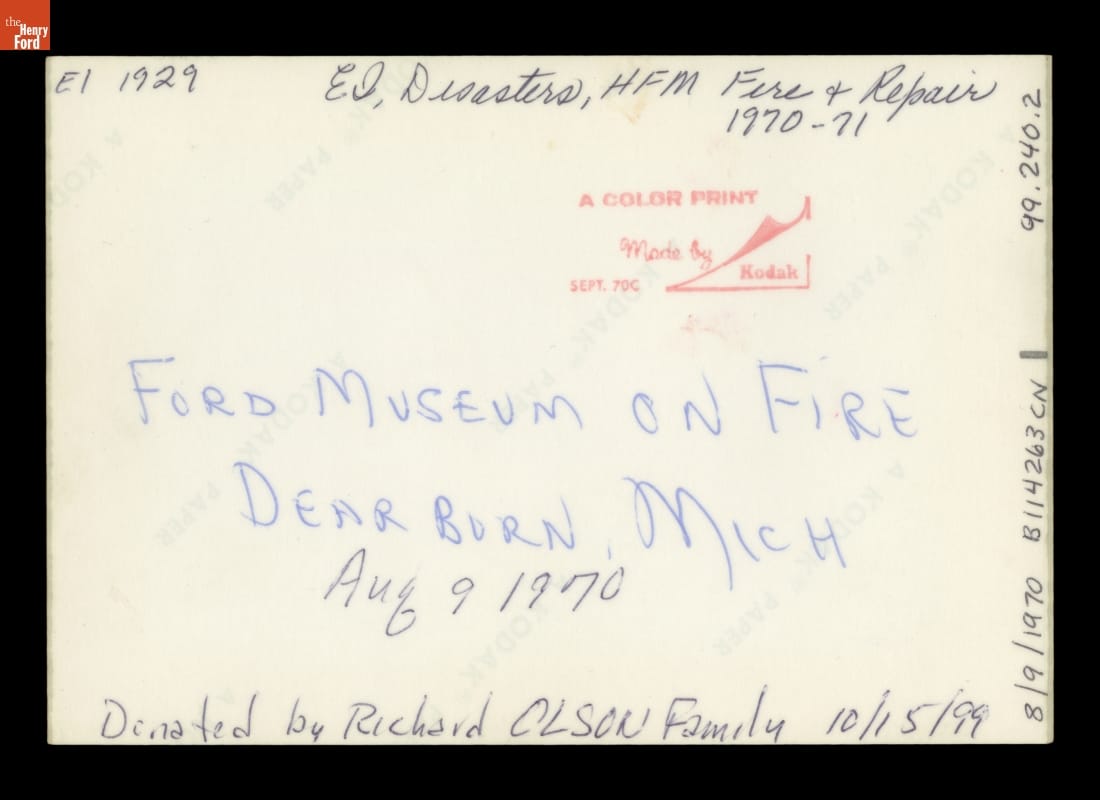 the
Henry
Ford
EI 1929
EI, Disasters, HFM Fire + Repair
1970-71
A COLOR PRINT
Made by
Kodak
SEPT. 70C
FORD MUSEUM ON FIRE
DEARBORN, MICH
Aug 9 1970
Donated by Richard OLSON Family 10/15/99
8/9/1970 B114263CN 99.240.2
A KODAK® PAPER